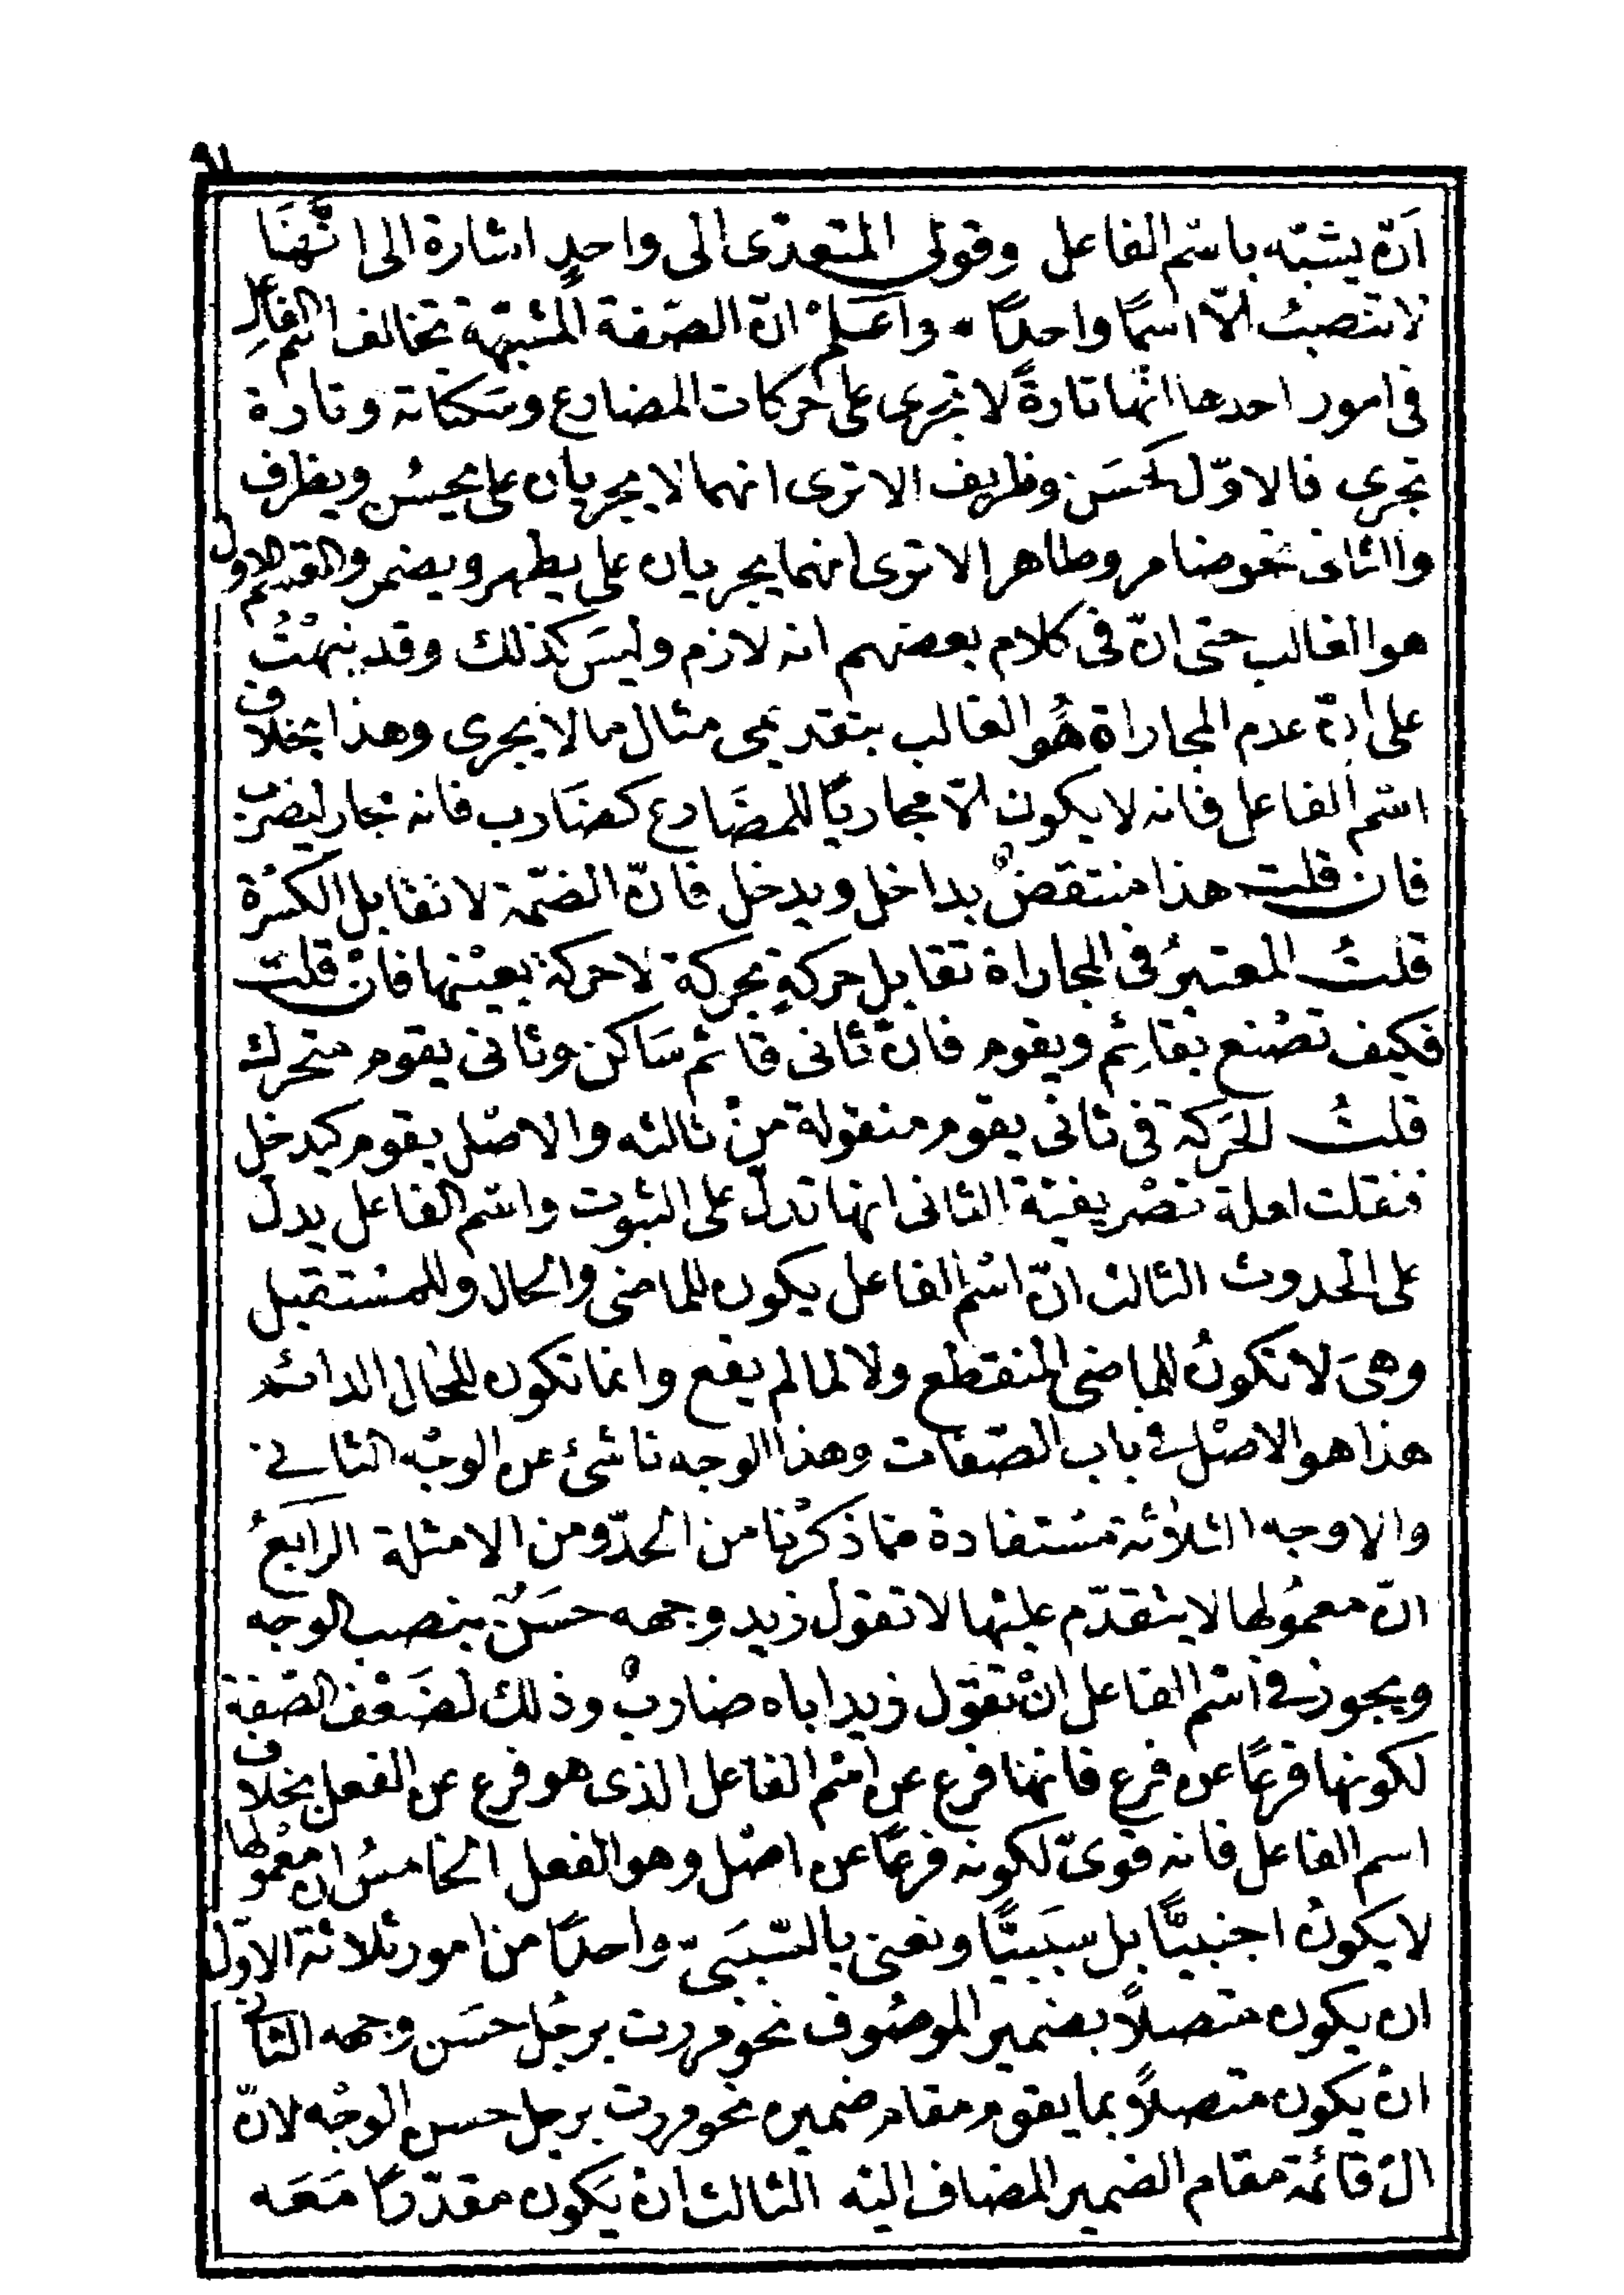 ٩٨
انّه يشبّه باسْم الفاعل وقولى المتعدّى الى واحدٍ اشارة الى انَّهَا
لا تنتصبُ الّا اسمًا واحدًا • واَعْلم انّ الصّفة المشبّهة تخالف اسْم الفاعلِ
فى امور احدها انّها تارةً لا تجرى على حركات المضارع وسَكناته وتارة
تجرى فالاوّل كحَسَن وظريف الا ترى انهما لا يجريان على يحسُن ويظرف
والثانى نحو ضامر وطاهر الا ترى انهما يجريان على يطهر ويضمر والقسْم الاول
هو الغالب حتى انّ فى كلام بعضهم انه لازم وليسَ كذلك وقد نبهْتُ
على انّ عدم المجاراة هُو الغالب بتقديمى مثال ما لا يجرى وهذا بخلاف
اسْم الفاعل فانه لا يكون الّا مجاريًا للمضَارع كضَارب فانه مجار ليضرب
فان قلت هذا منتقضٌ بداخل ويدخل فانّ الضّمة لا تقابل الكسْرة
قلتُ المعتبرُ فى المجاراة تقابل حركةٍ بحركة لا حركة بعيْنها فانْ قلت
فكيف تصْنع بقائِم ويقوم فانّ ثانى قائم سَاكن وثانى يقوم متحرك
قلتُ الحَركة فى ثانى يقوم منقولة منْ ثالثه والاصْل يقوم كيدخل
فنقلت لعلة تصْريفيّة الثانى انها تدلّ على الثبوت واسْم الفاعل يدل
على الحدوث الثالث انّ اسْم الفاعل يكون للماضى والحال وللمسْتقبل
وهىَ لا تكونُ للماضى المنقطع ولا لما لم يقع وانما تكون للحال الدائم
هذا هو الاصْل فى باب الصّفات وهذا الوجه ناشئ عن الوجْه الثانى
والاوجه الثلاثة مسْتفادة مما ذكرْنا من الحدّ ومن الامثلة الرابعُ
انّ معمُولها لا يتقدّم عليْها لا تقول زيد وجهه حسَنٌ بنصب الوجه
ويجوز فى اسْم الفاعل انْ تقول زيد اباه ضاربٌ وذلك لضَعْف الصّفة
لكونها فرعًا عن فرع فانها فرع عن اسْم الفاعل الذى هو فرع عن الفعل بخلاف
اسم الفاعل فانه قوىّ لكونه فرعًا عن اصْل وهو الفعل الخامسُ ان معْمولها
لا يكونُ اجنبيًّا بل سَببيًّا ونعنى بالسّببَىّ واحدًا من امور ثلاثة الاوّل
ان يكون متصلًا بضمير الموصُوف نحو مررت برجُل حسَن وجهه الثانى
انْ يكون متصلًا بما يقوم مقام ضميره نحو مررت برجل حسن الوجْه لانّ
الْ قائمة مقام الضمير المضاف اليْه الثالث انْ يَكون مقدّرًا مَعَه